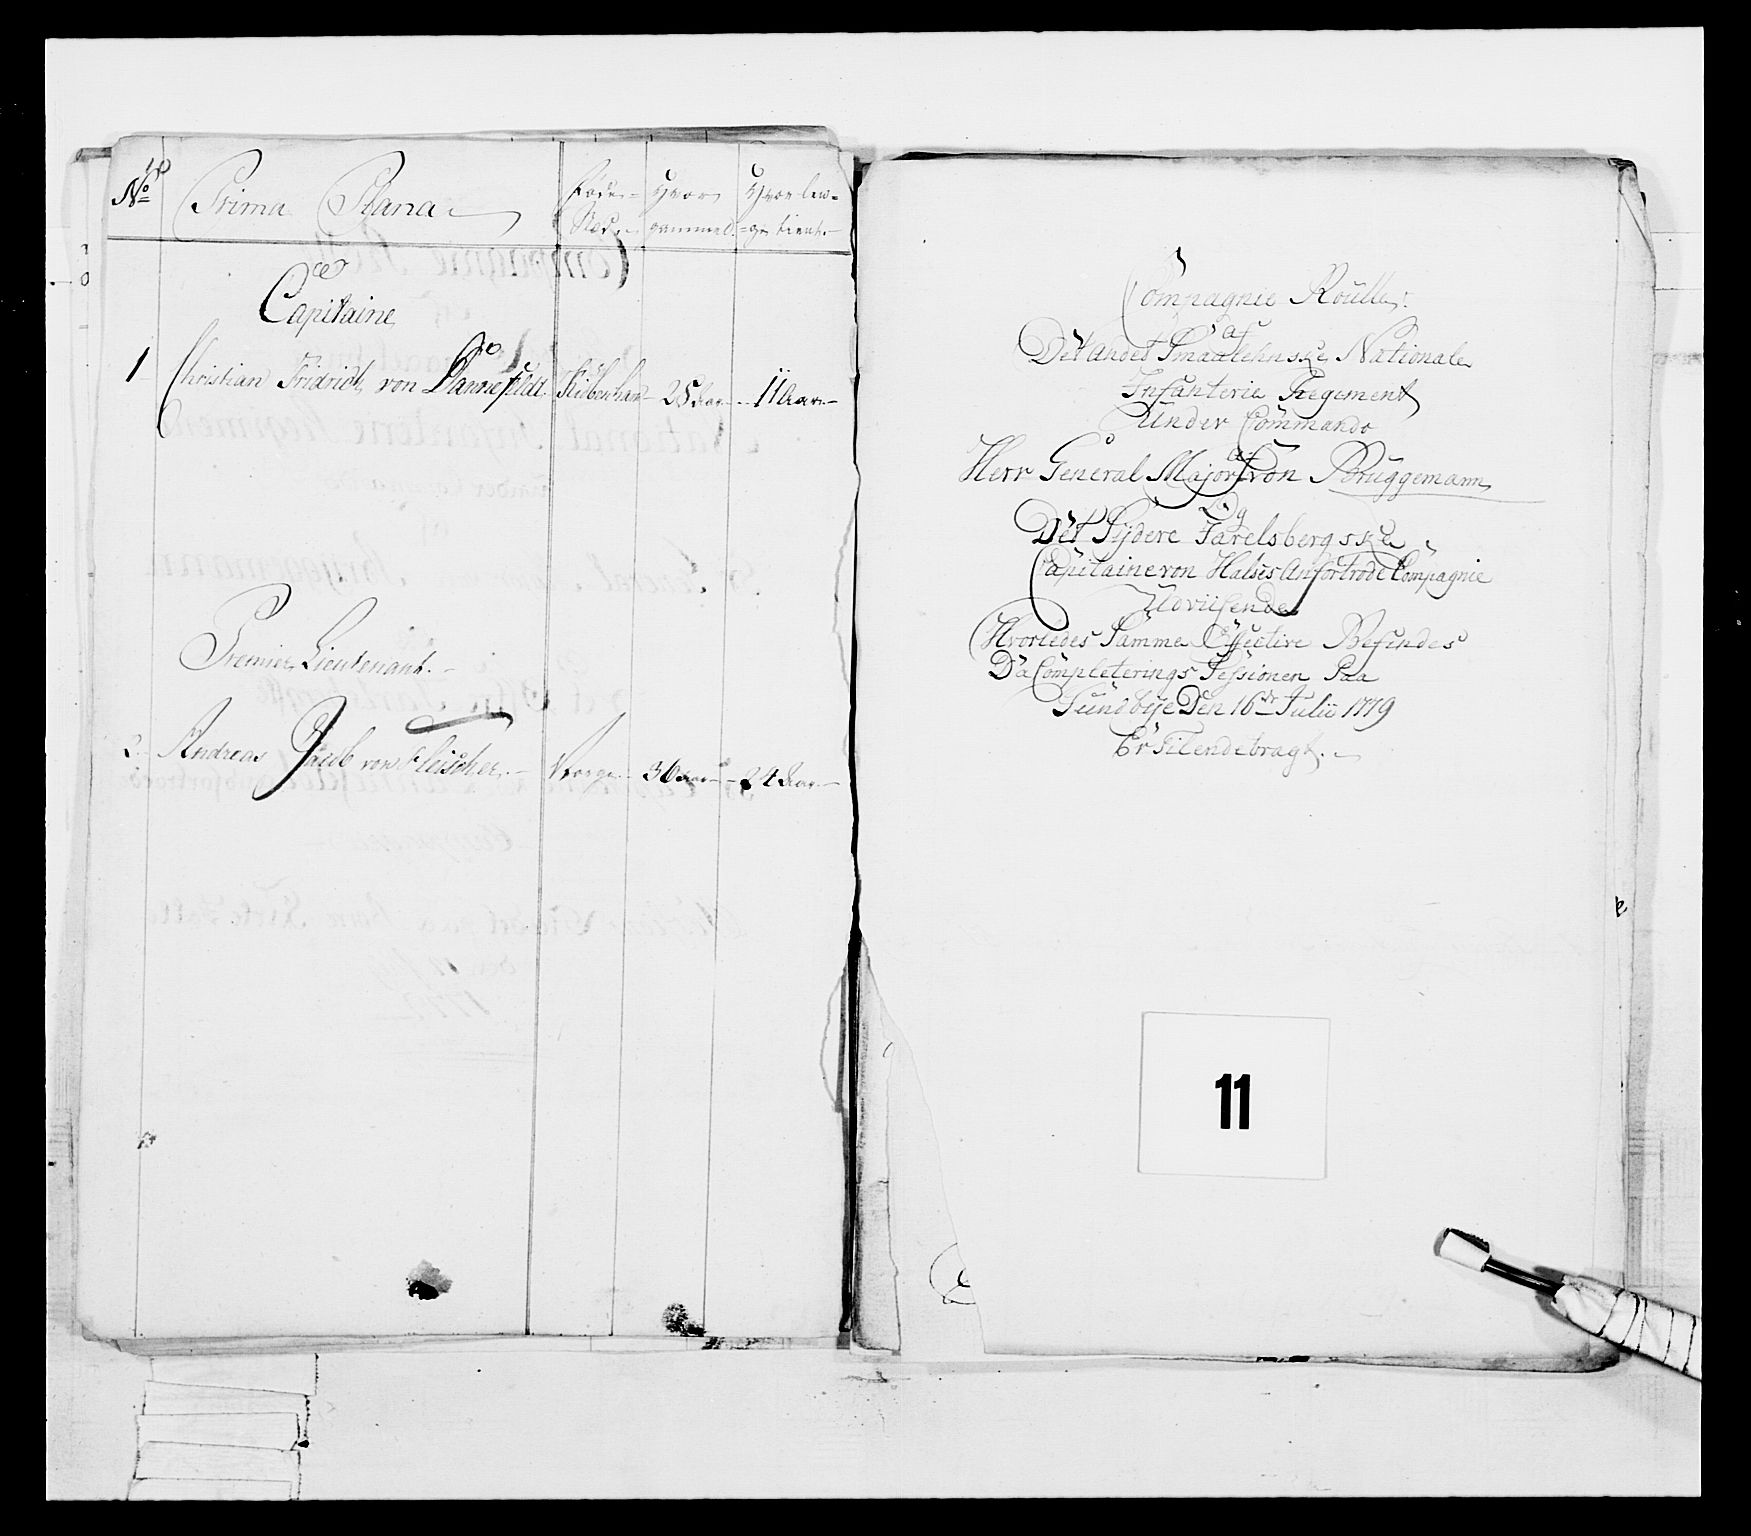 No Prima Plana Føde- Hvor Hvorlæn-
Stæd. gammel. ge tient.
Capitaine
1 Christian Fridrich von Dannefeldt Kiöbenhavn 25 Aar 11 Aar
Premier Lieutenant.
2. Andreas Jacob von Fleischer. Norge 36 Aar 24 Aar
Compagnie Roulle
af
Det andet Smaalehnske Nationale
Infanterie Regement
Under Commando
af
Herr General Major von Brüggemann
Og
Det Sÿdere Jarelsbergske
Capitaine von Halses Anfortrode Compagnie
Udviisende
Hvorledes Samme Effective Befindes
Da Completerings Sessionen Paa
Sundbÿe Den 16de Julii 1779
Er Tilendebragt.
11